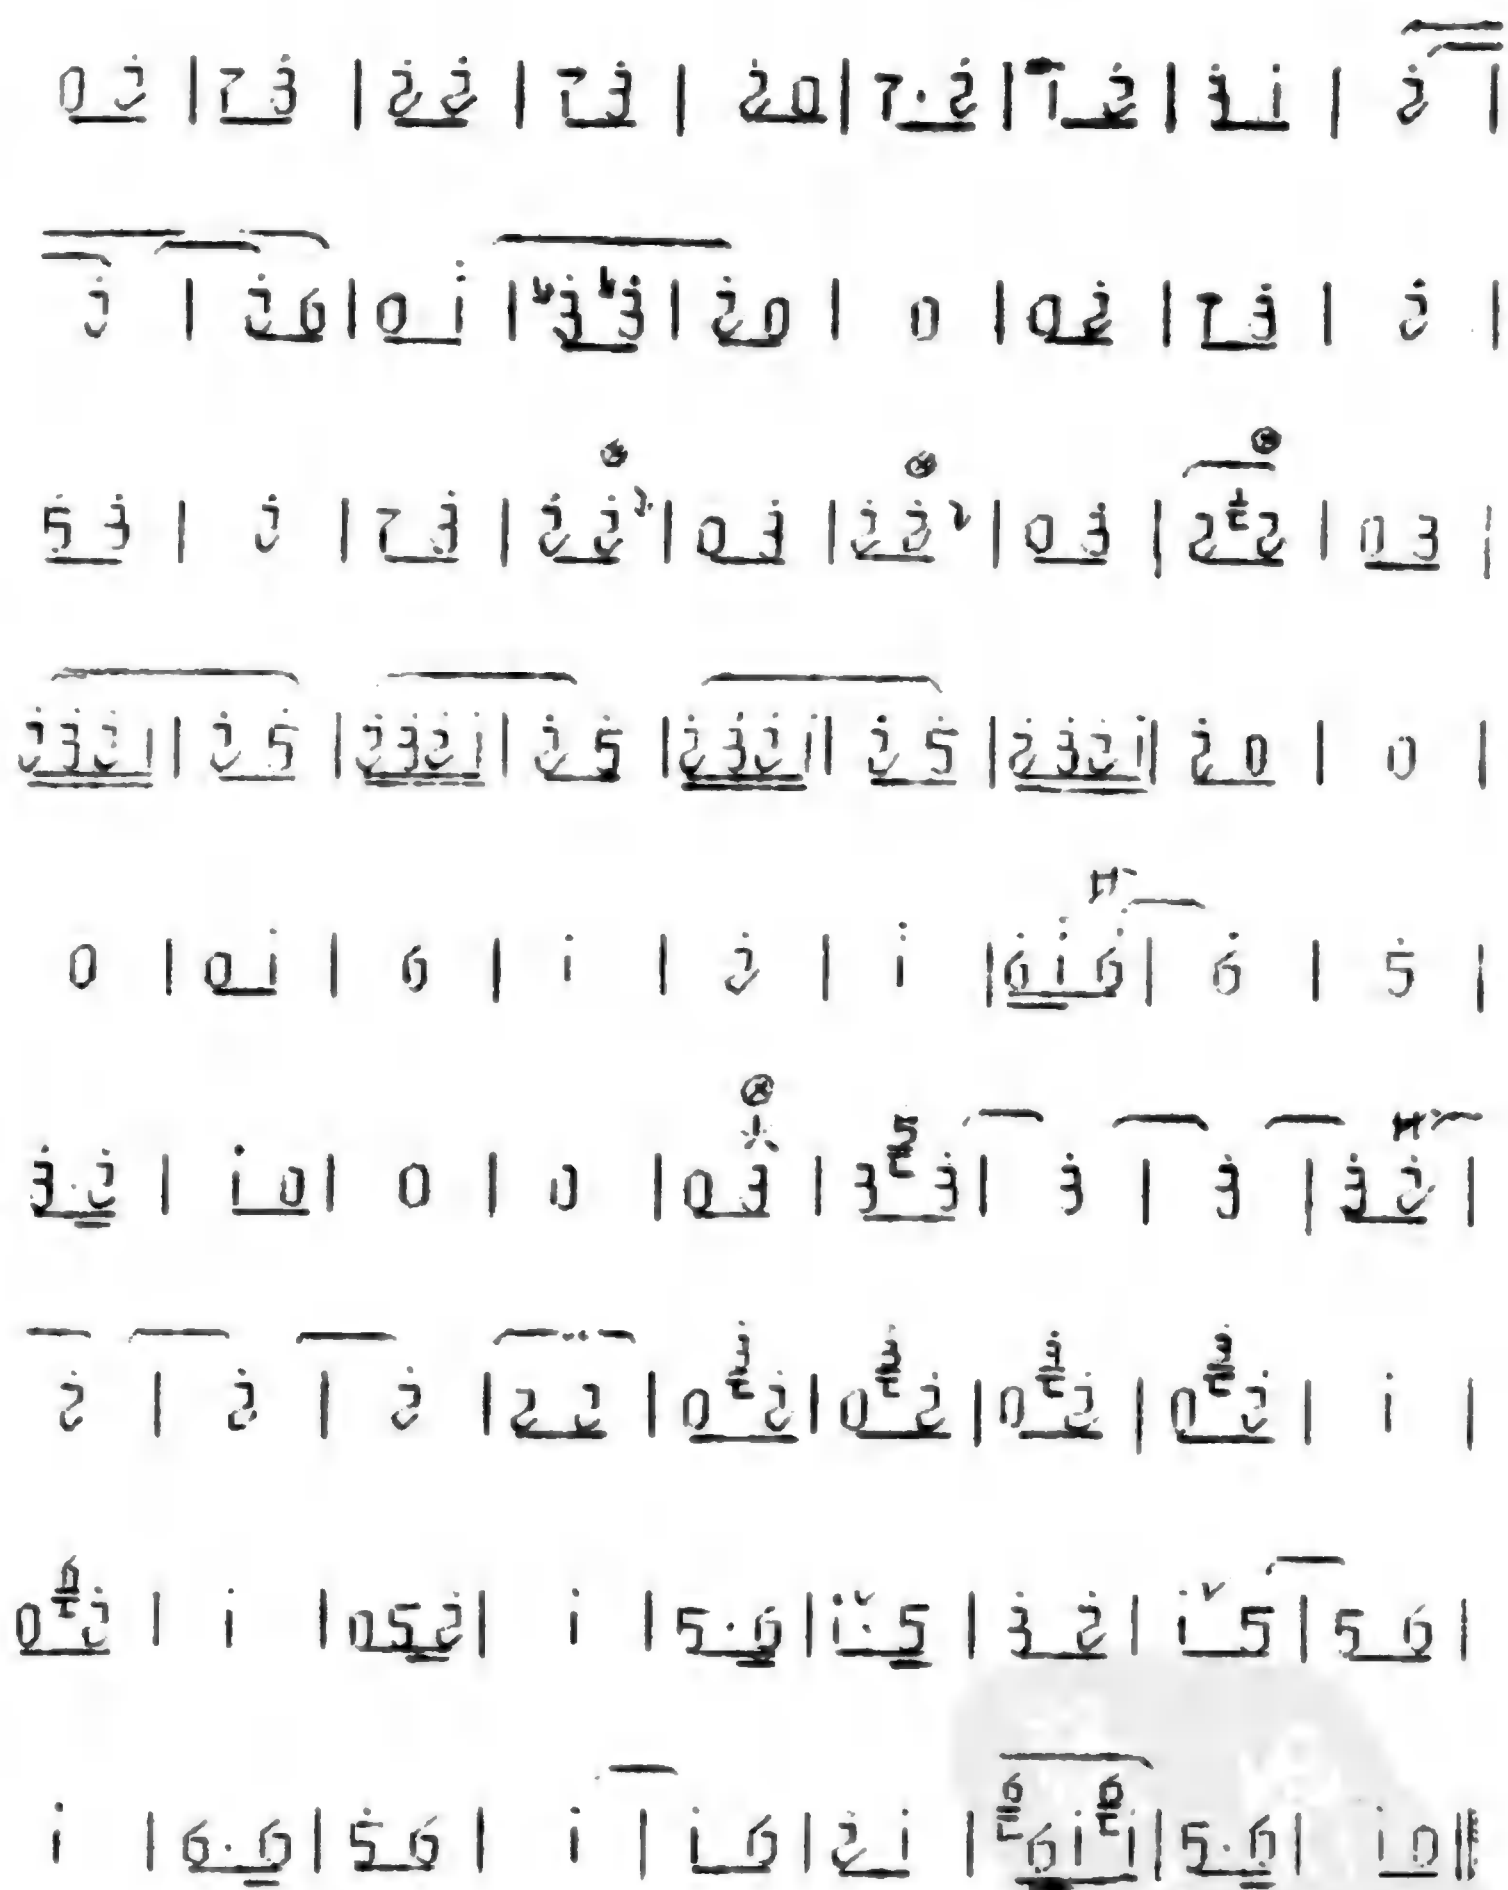 0 2̇ | 7 3̇ | 2̇ 2̇ | 7 3̇ | 2̇ 0 | 7 · 2̇ | 1̇ 2̇ | 3̇ 1̇ | 2̇ |
2̇ | 2̇ 6 | 0 1̇ | 3̇ 3̇ | 2̇ 0 | 0 | 0 2̇ | 7 3̇ | 2̇ |
5̇ 3̇ | 2̇ | 7 3̇ | 2̇ 2̇ | 0 3̇ | 2̇ 2̇ | 0 3̇ | 2 2 | 0 3 |
2̇ 3̇ 2̇ 1̇ | 2̇ 5̇ | 2̇ 3̇ 2̇ 1̇ | 2̇ 5̇ | 2̇ 3̇ 2̇ 1̇ | 2̇ 5̇ | 2̇ 3̇ 2̇ 1̇ | 2̇ 0 | 0 |
0 | 0 1̇ | 6 | 1̇ | 2̇ | 1̇ | 6̇ 1̇ 6̇ | 6̇ | 5̇ |
3̇ · 2̇ | 1̇ 0 | 0 | 0 | 0 3̇ | 3 5 3̇ | 3̇ | 3̇ | 3̇ 2̇ |
2̇ | 2̇ | 2̇ | 2 2 | 0 3̇ 2̇ | 0 3̇ 2̇ | 0 3̇ 2̇ | 0 3̇ 2̇ | 1̇ |
0 6 2̇ | 1̇ | 0 5 2̇ | 1̇ | 5 · 6 | 1̇ · 5 | 3̇ 2̇ | 1̇ 5 | 5 6 |
1̇ | 6 · 6 | 5 6 | 1̇ | 1̇ 6 | 2̇ 1̇ | 6 6 1̇ 6 1̇ | 5 · 6 | 1̇ 0 ‖